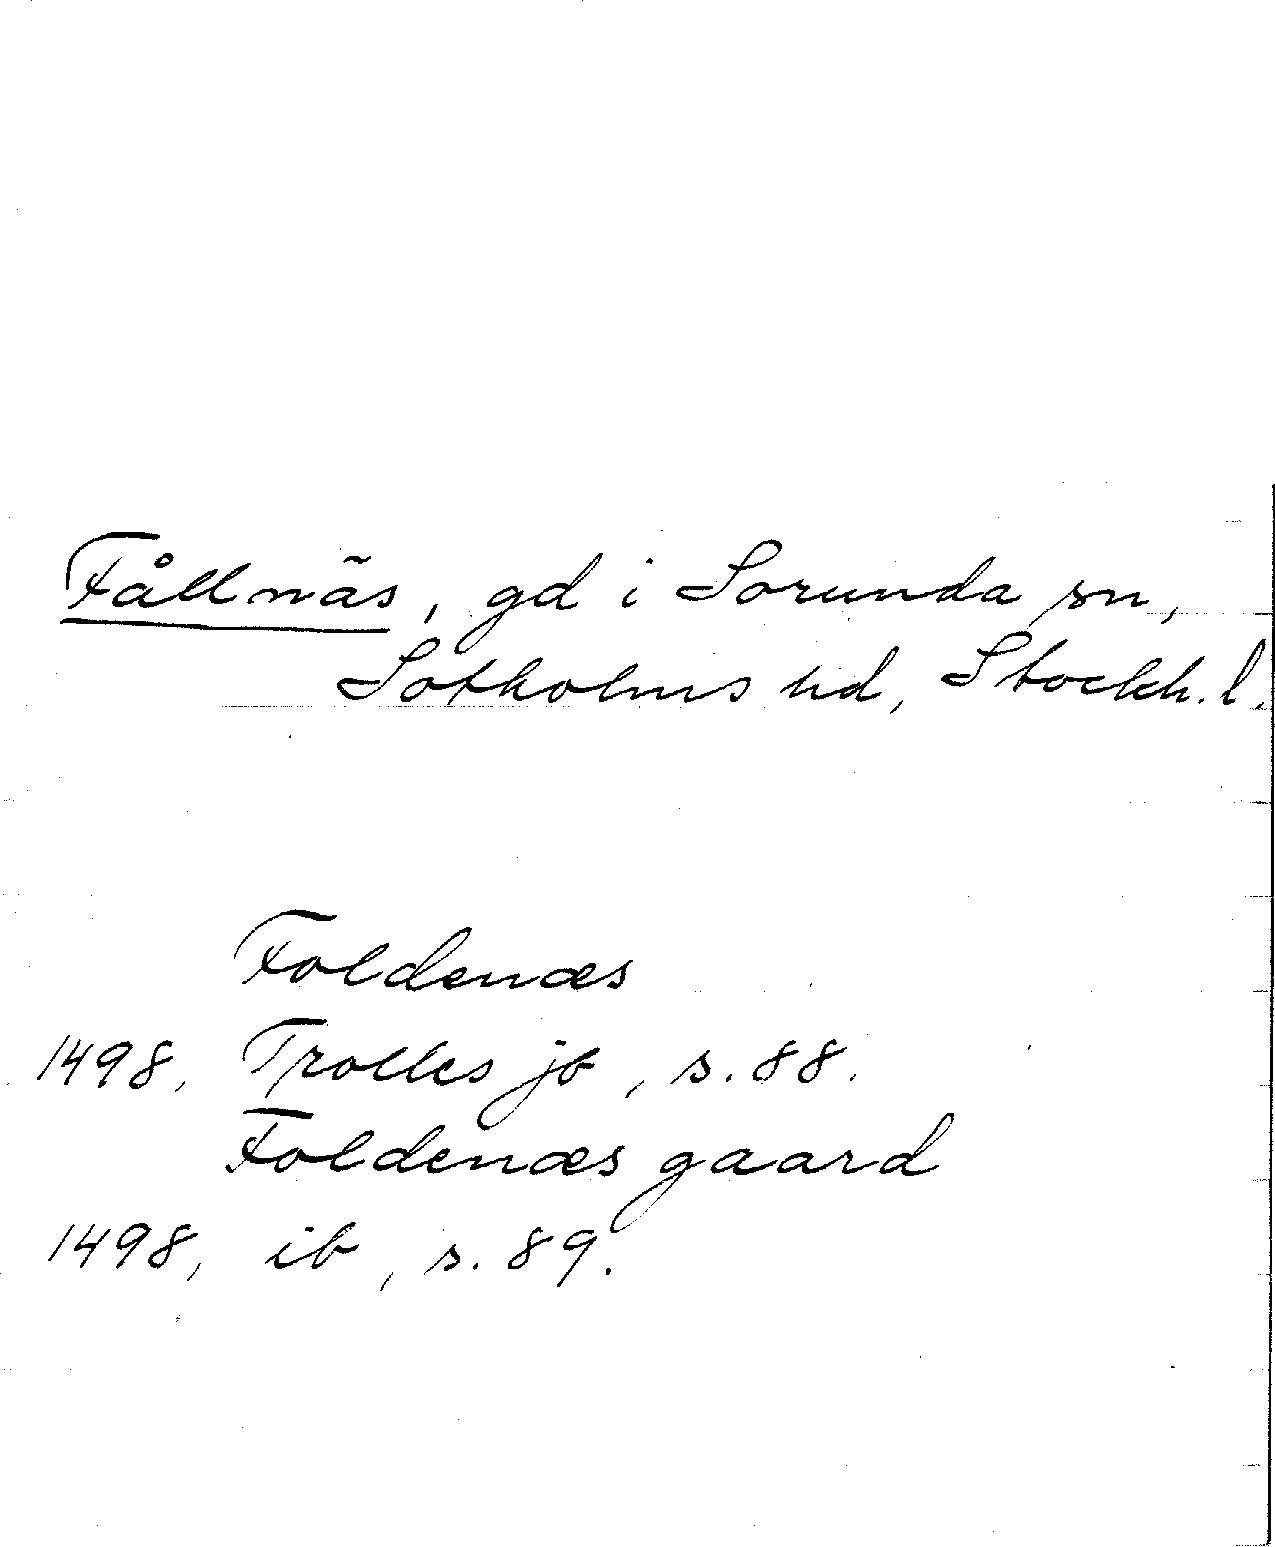 Fållnäs, gd i Sorunda sn,
Sotholms hd, Stockh. l.
Foldenæs
1498, Trolles jb, s. 88.
Foldenæs gaard
1498, ib, s. 89.